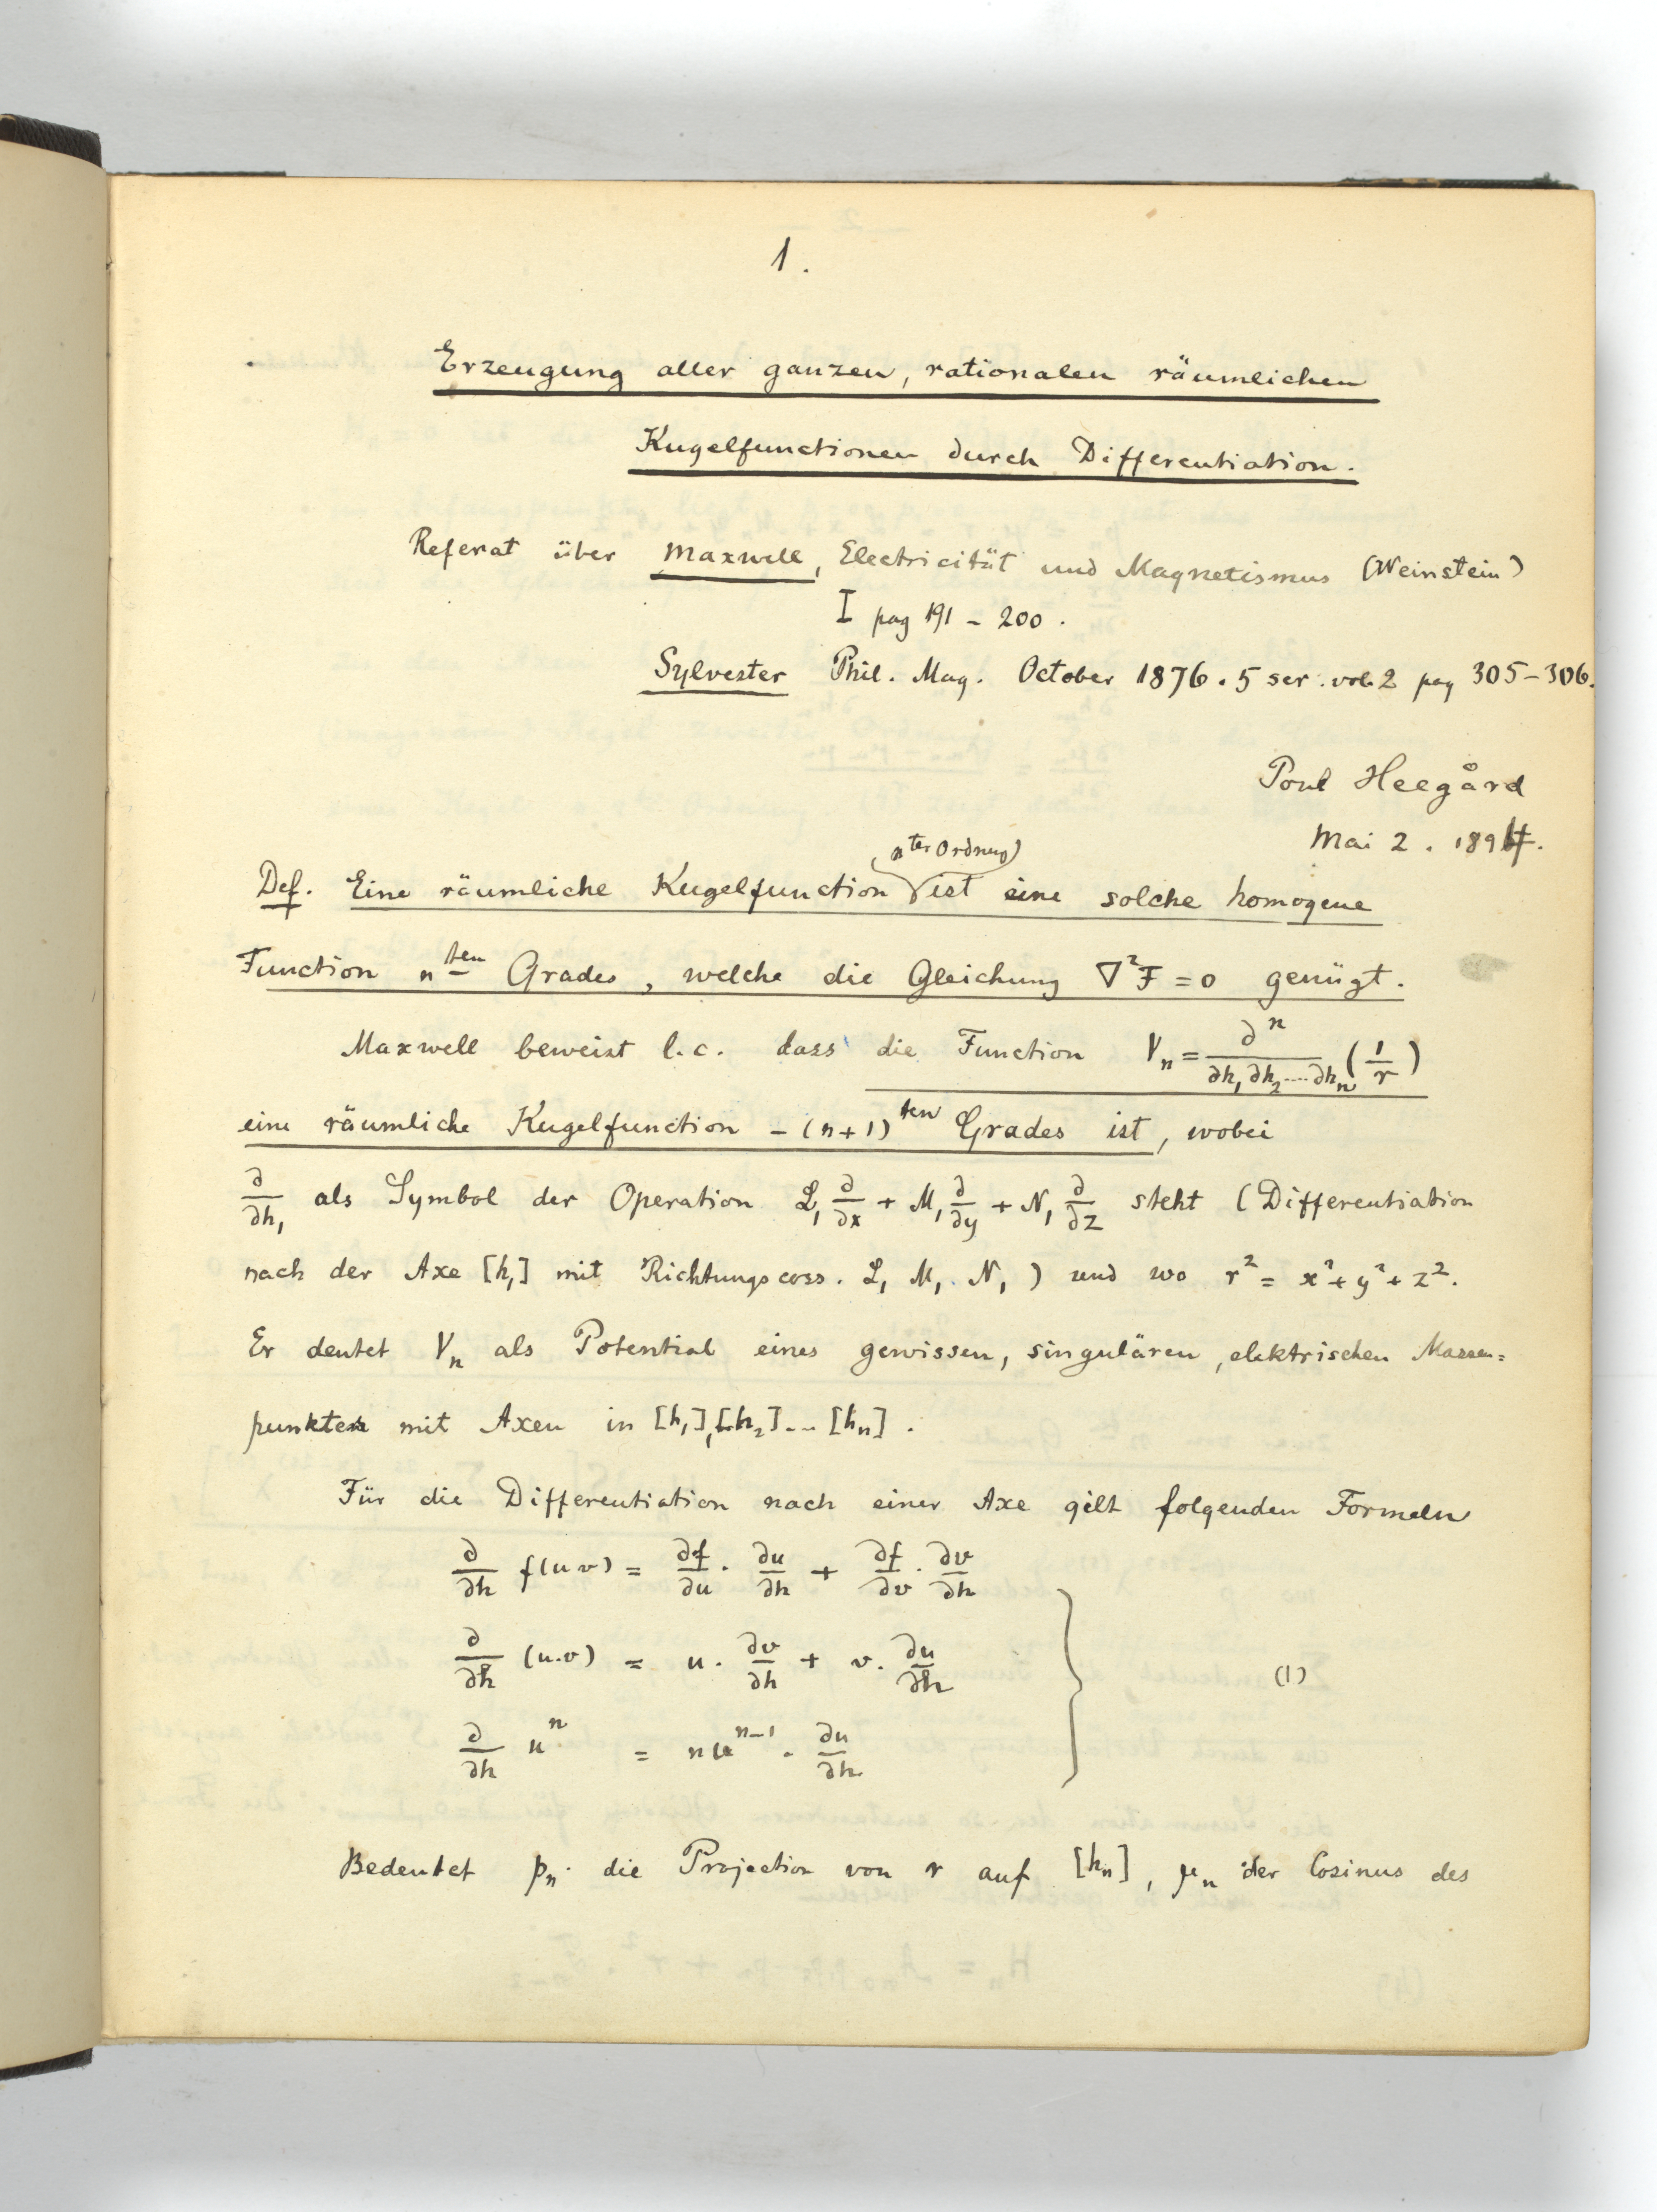 1.
Erzeugung aller ganzen, rationalen räumlichen
Kugelfunctionen durch Differentiation.
Referat über Maxwell, Electricität und Magnetismus (Weinstein)
I pag 191 - 200.
Sylvester Phil. Mag. October 1876. 5 ser. vol. 2 pag 305-306.
Poul Heegård
Mai 2. 1894.
(nter Ordnung)
Def. Eine räumliche Kugelfunction ist eine solche homogene
Function nten Grades, welche die Gleichung ∇²F = 0 genügt.
Maxwell beweist l.c. dass die Function Vₙ = ∂ⁿ/(∂h₁ ∂h₂ .... ∂hₙ) (1/r)
eine räumliche Kugelfunction -(n+1)ten Grades ist, wobei
∂/∂h₁ als Symbol der Operation L₁ ∂/∂x + M₁ ∂/∂y + N₁ ∂/∂z steht (Differentiation
nach der Axe [h₁] mit Richtungscoss. L₁ M₁. N₁) und wo r² = x² + y² + z².
Er deutet Vₙ als Potential eines gewissen, singulären, elektrischen Massen=
punktes mit Axen in [h₁], [h₂] ... [hₙ].
Für die Differentiation nach einer Axe gilt folgenden Formeln
∂/∂h f(u v) = ∂f/∂u · ∂u/∂h + ∂f/∂v · ∂v/∂h
∂/∂h (u.v) = u · ∂v/∂h + v · ∂u/∂h (1)
∂/∂h uⁿ = n uⁿ⁻¹ · ∂u/∂h
Bedeutet pₙ die Projection von r auf [hₙ], μₙ der Cosinus des